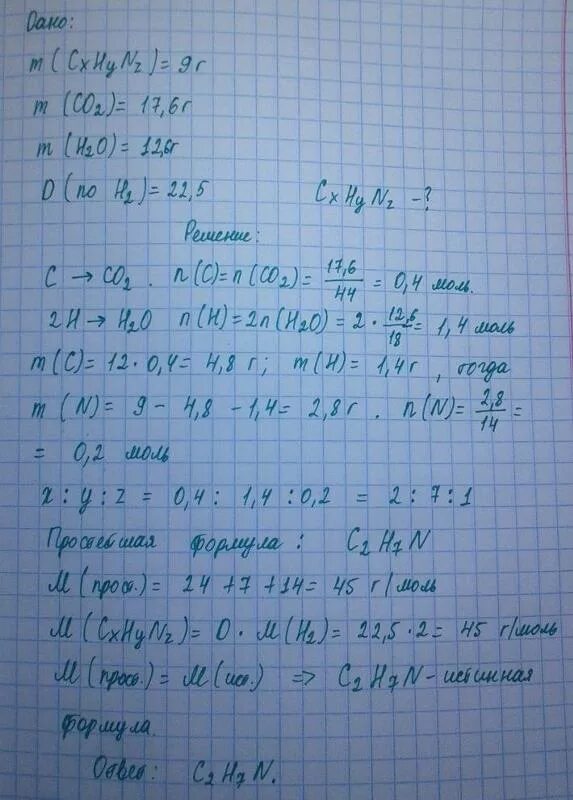 Дано:
m (CxHyNz) = 9г
m (CO2) = 17,6г
m (H2O) = 12,6г
D (по H2) = 22,5 CxHyNz - ?
Решение:
C → CO2 . n(C) = n(CO2) = 17,6/44 = 0,4 моль.
2H → H2O n(H) = 2n(H2O) = 2 · 12,6/18 = 1,4 моль
m(C) = 12 · 0,4 = 4,8 г ; m(H) = 1,4г , тогда
m (N) = 9 - 4,8 - 1,4 = 2,8 г . n(N) = 2,8/14 =
= 0,2 моль
x : y : z = 0,4 : 1,4 : 0,2 = 2 : 7 : 1
Простейшая формула : C2H7N
M (прост.) = 24 + 7 + 14 = 45 г/моль
M (CxHyNz) = D · M(H2) = 22,5 · 2 = 45 г/моль
M (прост.) = M (ист.) => C2H7N - истинная
формула.
Ответ : C2H7N.